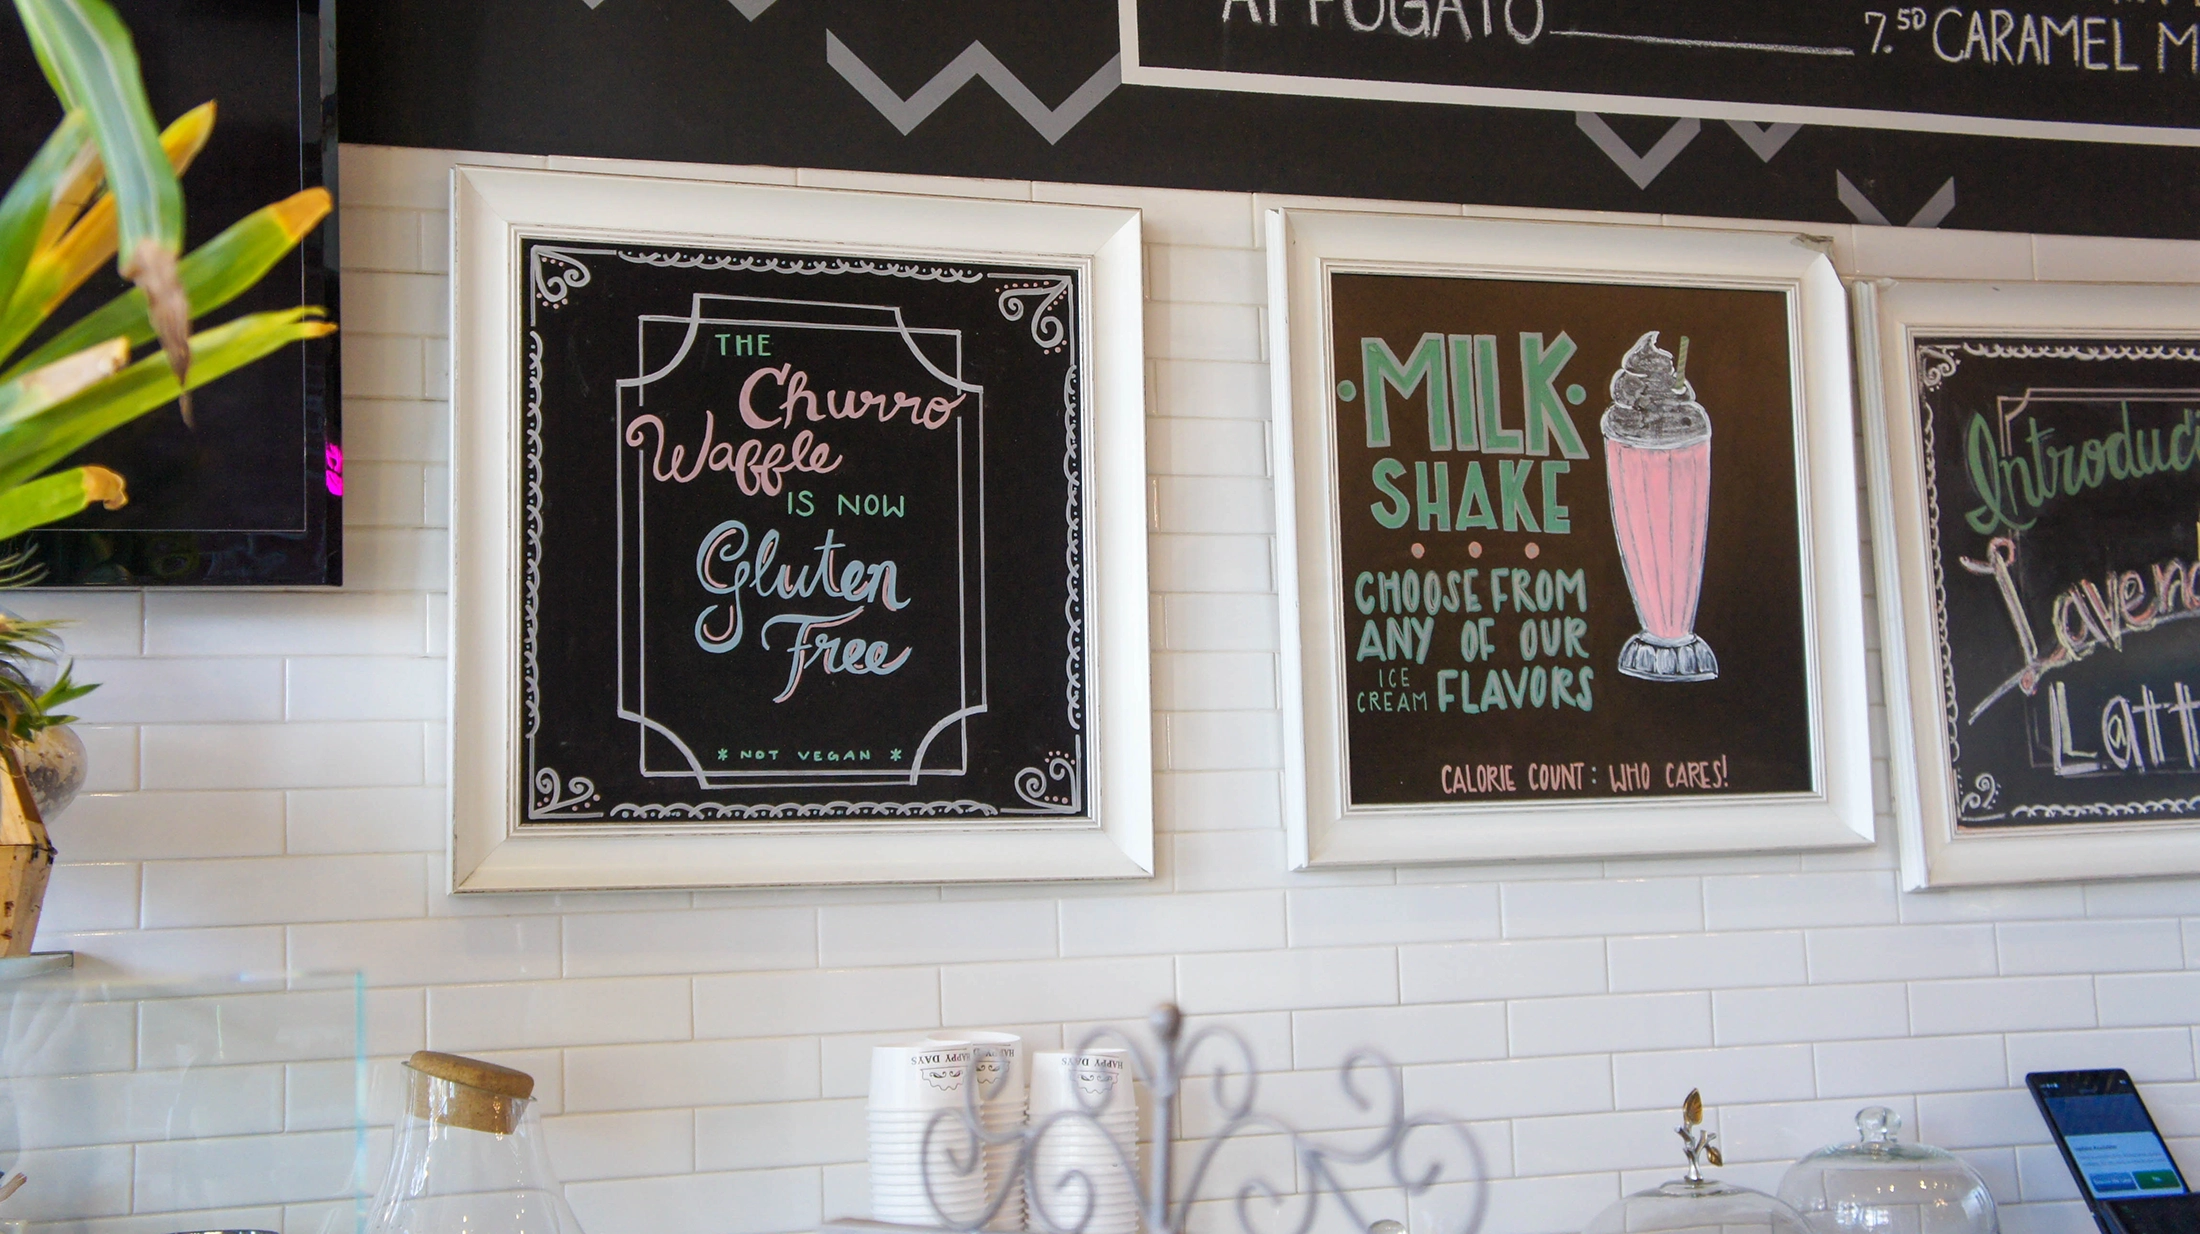 AFFOGATO 7.50 CARAMEL
THE
Churro
Waffle
IS NOW
Gluten
Free
* NOT VEGAN *
• MILK •
SHAKE
CHOOSE FROM
ANY OF OUR
ICE CREAM FLAVORS
CALORIE COUNT: WHO CARES!
HAPPY DAYS
HAPPY DAYS
HAPPY DAYS